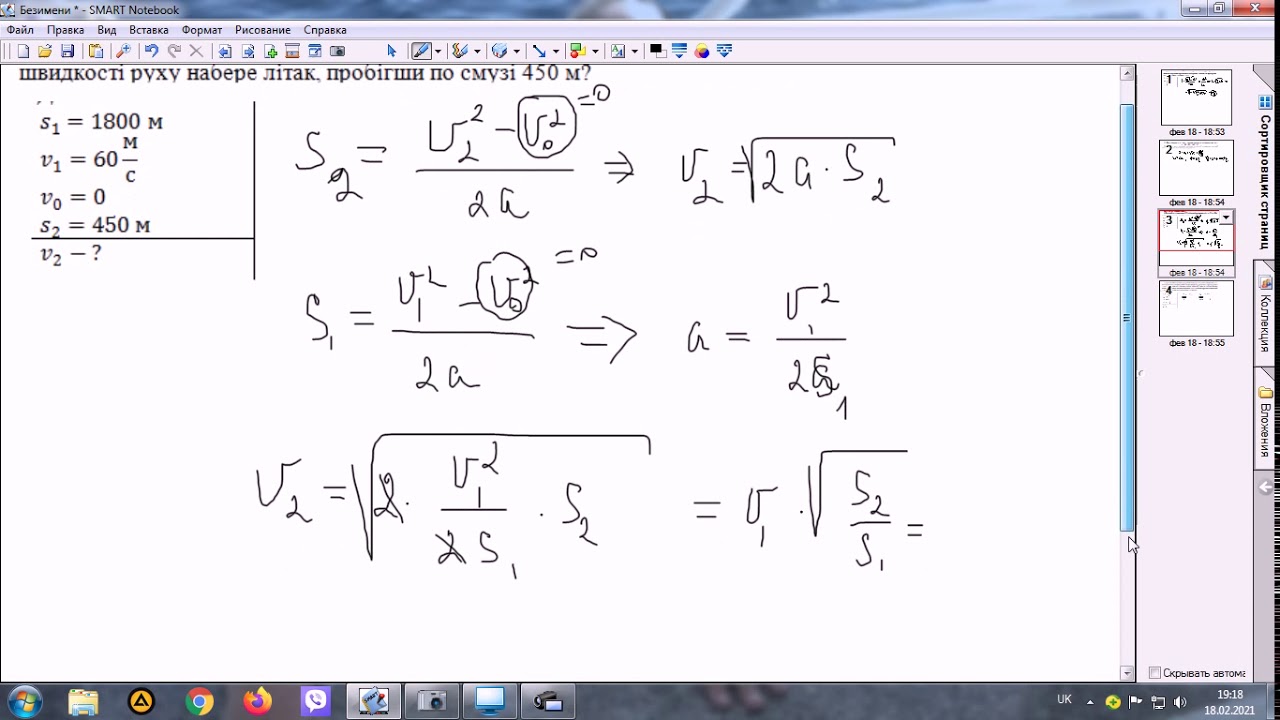 Безимени * - SMART Notebook
Файл Правка Вид Вставка Формат Рисование Справка
швидкості руху набере літак, пробігши по смузі 450 м?
s₁ = 1800 м
v₁ = 60 м/с
v₀ = 0
s₂ = 450 м
v₂ − ?
S₂ = (v₂² − v₀²)/(2a) =0 ⇒ v₂ = √(2a · S₂)
S₁ = (v₁² − v₀²)/(2a) =0 ⇒ a = v₁²/(2S₁)
v₂ = √(2 · v₁²/(2S₁) · S₂) = v₁ · √(S₂/S₁) =
1
фев 18 - 18:53
2
фев 18 - 18:54
3
фев 18 - 18:54
4
фев 18 - 18:55
Сортировщик страниц
Коллекция
Вложения
Скрывать автома
UK
19:18
18.02.2021